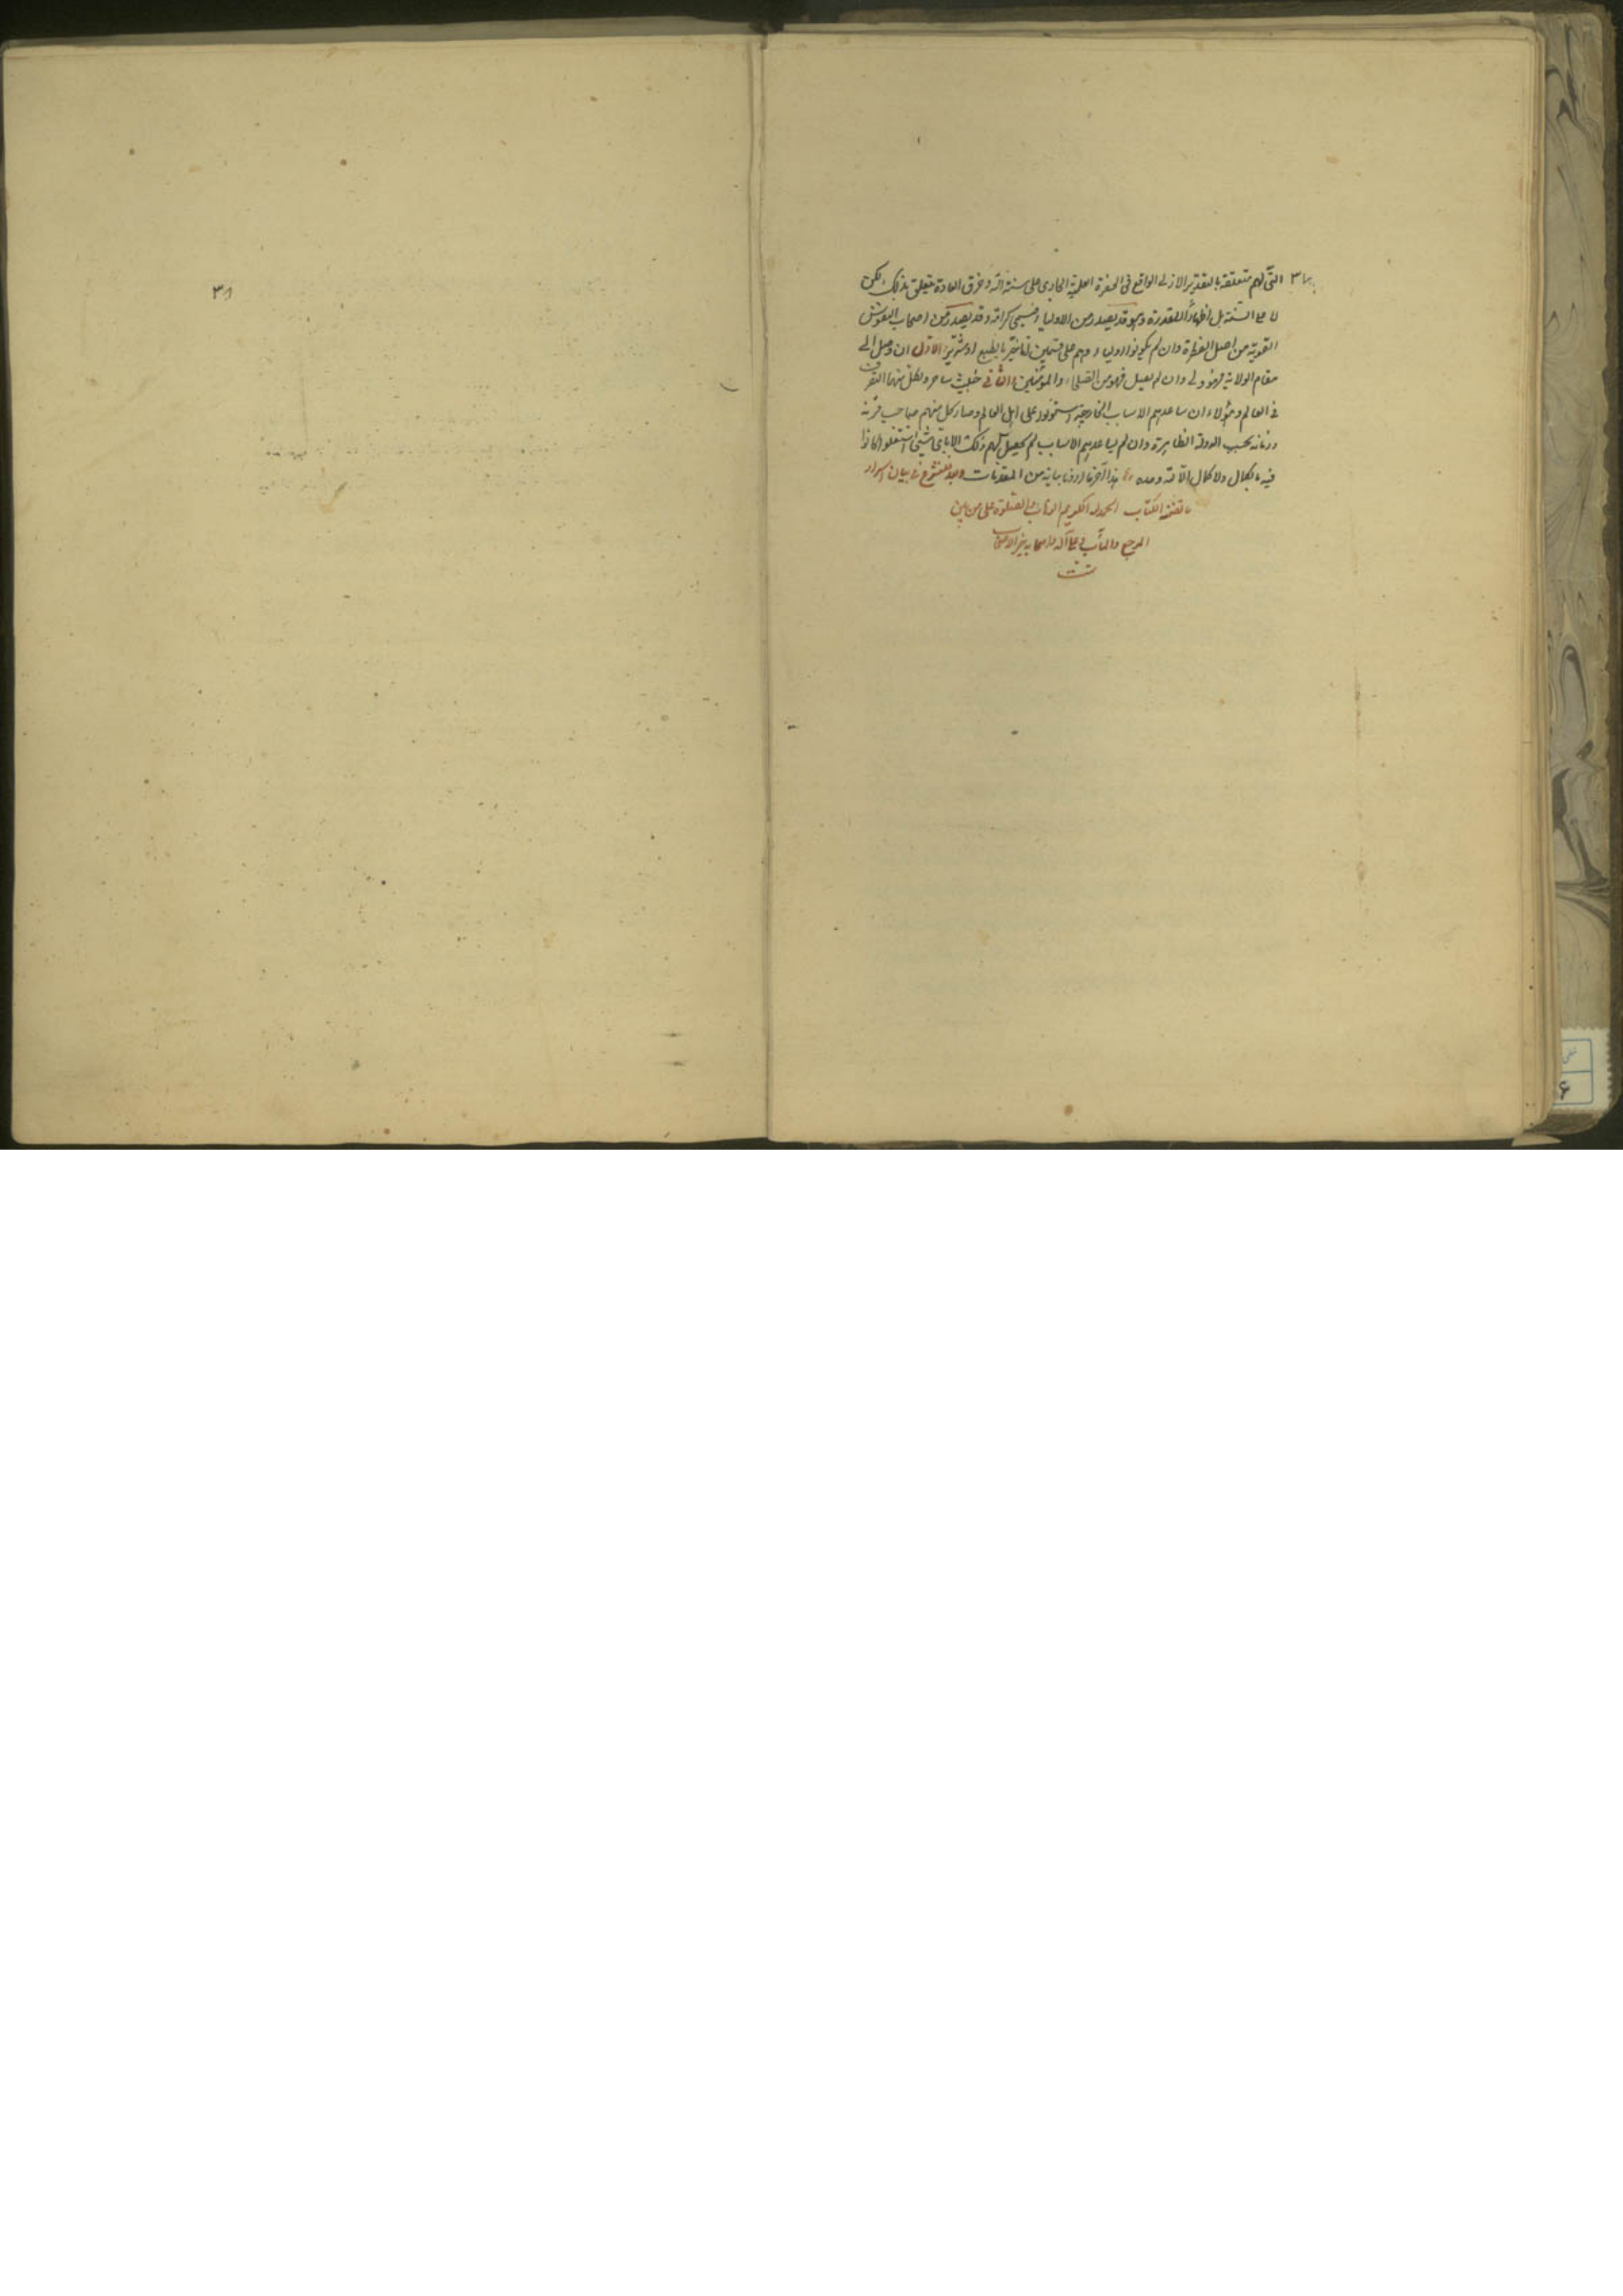 التى لهم متعلقة بالتقدير الازلى الواقع فى الحضرة العلمية الجارى على سنة الله وخرق العادة يتعلق بذلك لكن
لا على السنة بل اظهارًا للقدرة وهو قد يصدر من الاولياء فيسمى كرامة وقد يصدر من اصحاب النفوس
القوية من اصل الفطرة وان لم يكونوا اولياء وهم على قسمين اما خيّر بالطبع او شرّير الاول ان وصل الى
مقام الولاية فهو ولى وان لم يصل فهو من الصلحاء والمؤمنين والثانى خبيث ساحر ولكل منهما التصرف
فى العالم وهؤلاء ان ساعدهم الاسباب الخارجية استولوا على اهل العالم وصار كل منهم صاحب قرنه
وزمانه بحسب الدولة الظاهرة وان لم يساعدهم الاسباب لم يحصل لهم ذلك الا باى شيئ اشتغلوا كانوا
فيه بالكمال ولا كمال الا لله وحده هذا آخر ما اردنا بيانه من المقدمات وبعد فلنشرع فى بيان اسرار
ما تضمنه الكتاب الحمد لله الكريم الوهاب والصلوة على من بين
المرجع والمآب وعلى آله واصحابه خير الاصحاب
تمت
٣٨